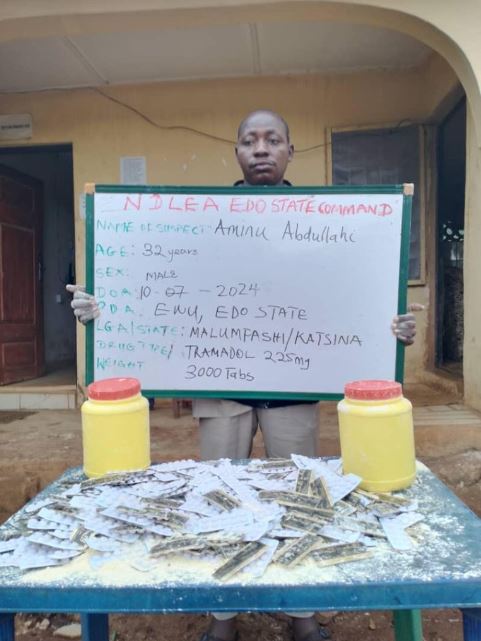 NDLEA EDO STATE COMMAND
NAME OF SUSPECT: Aminu Abdullahi
AGE: 32 years
SEX: MALE
D.O.A: 10-07-2024
P.D.A: EWU, EDO STATE
LGA/STATE: MALUMFASHI/KATSINA
DRUG TYPE/ TRAMADOL 225mg
WEIGHT 3000 Tabs